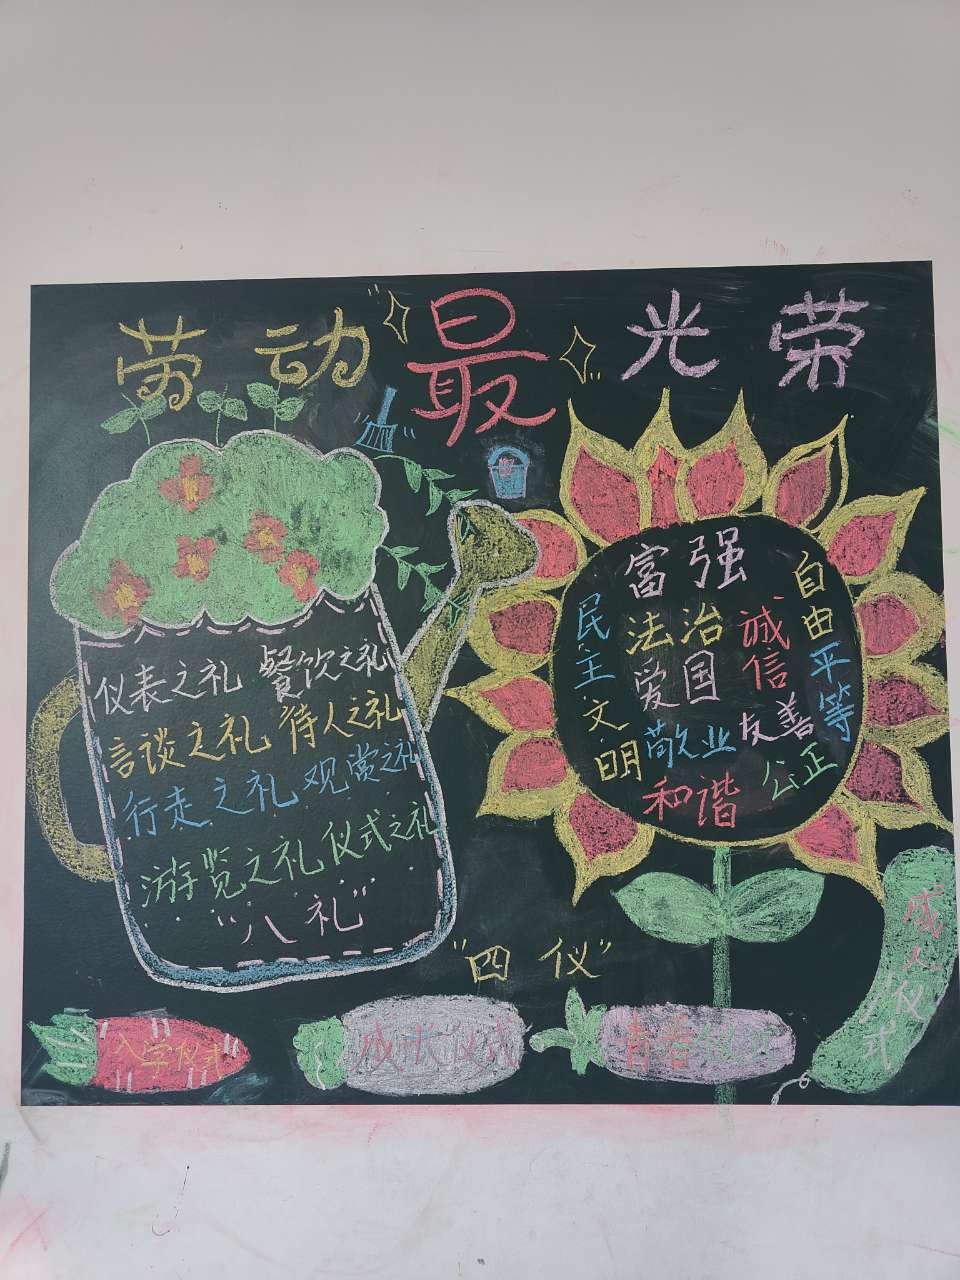 劳动最光荣
仪表之礼 餐饮之礼
言谈之礼 待人之礼
行走之礼 观赏之礼
游览之礼 仪式之礼
"八礼"
富强
民主
文明
和谐
自由
平等
公正
法治
爱国
敬业
诚信
友善
"四仪"
入学仪式
成长仪式
青春仪式
成人仪式